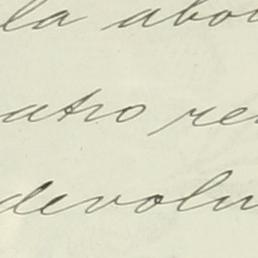 la abol
atro re
devolu